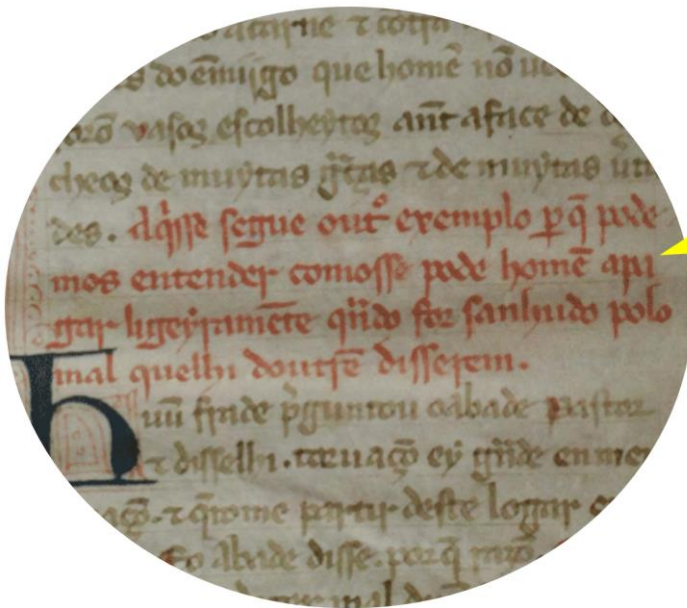 acarne ⁊ cotra
s do ẽmijgo que homẽ nõ uee
forõ vasos escolheytos ant̃ aface de d
cheos de muytas gr̃as ⁊ de muytas ũtu
des. Aq̇sse segue outº exemplo ꝑ q̃ pode
mos entender comosse pode homẽ apa
gar ligeyramẽte qñdo for sanhudo polo
mal quelhi doutrẽ disserem.
Huũ frade p̃guntou oabade pastor
⁊ disselhi. teruaçõ ey gr̃nde en meu
açõ. ⁊ q̃rome partir deste logar
Eo Abade disse. por q̃ razõ.
mal